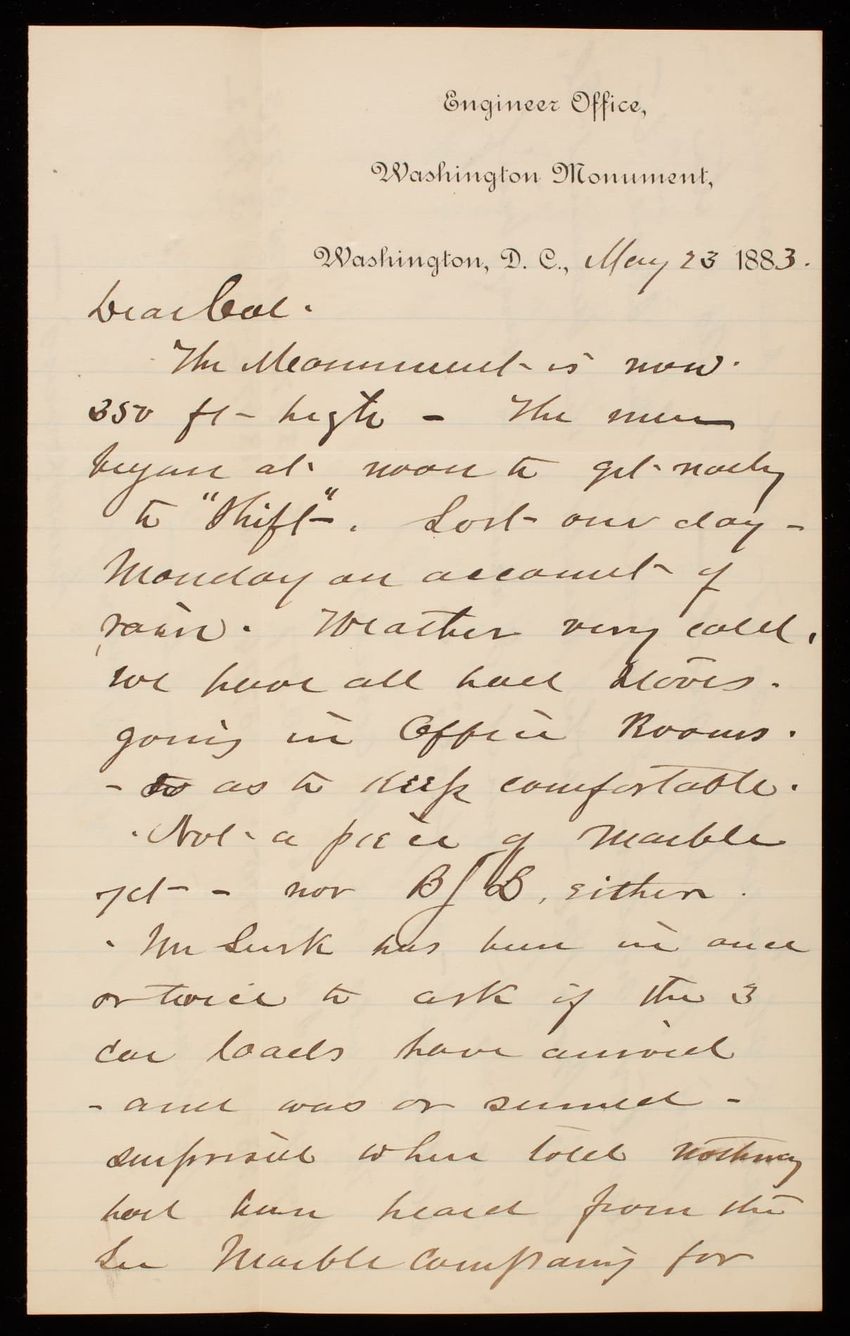 Engineer Office,
Washington Monument,
Washington, D. C., May 23 1883.
Dear Col.
The Monument is now
350 ft - high - The men
began at noon to get ready
to "Shift". Lost one day -
Monday on account of
rain. Weather very cold.
we have all had stoves.
going in Office Rooms.
- so as to keep comfortable.
Not a piece of Marble
yet - - nor B/L, either.
Mr Lusk has been in once
or twice to ask if the 3
car loads have arrived
- and was or seemed -
surprised when told nothing
had been heard from the
Lee Marble Company for